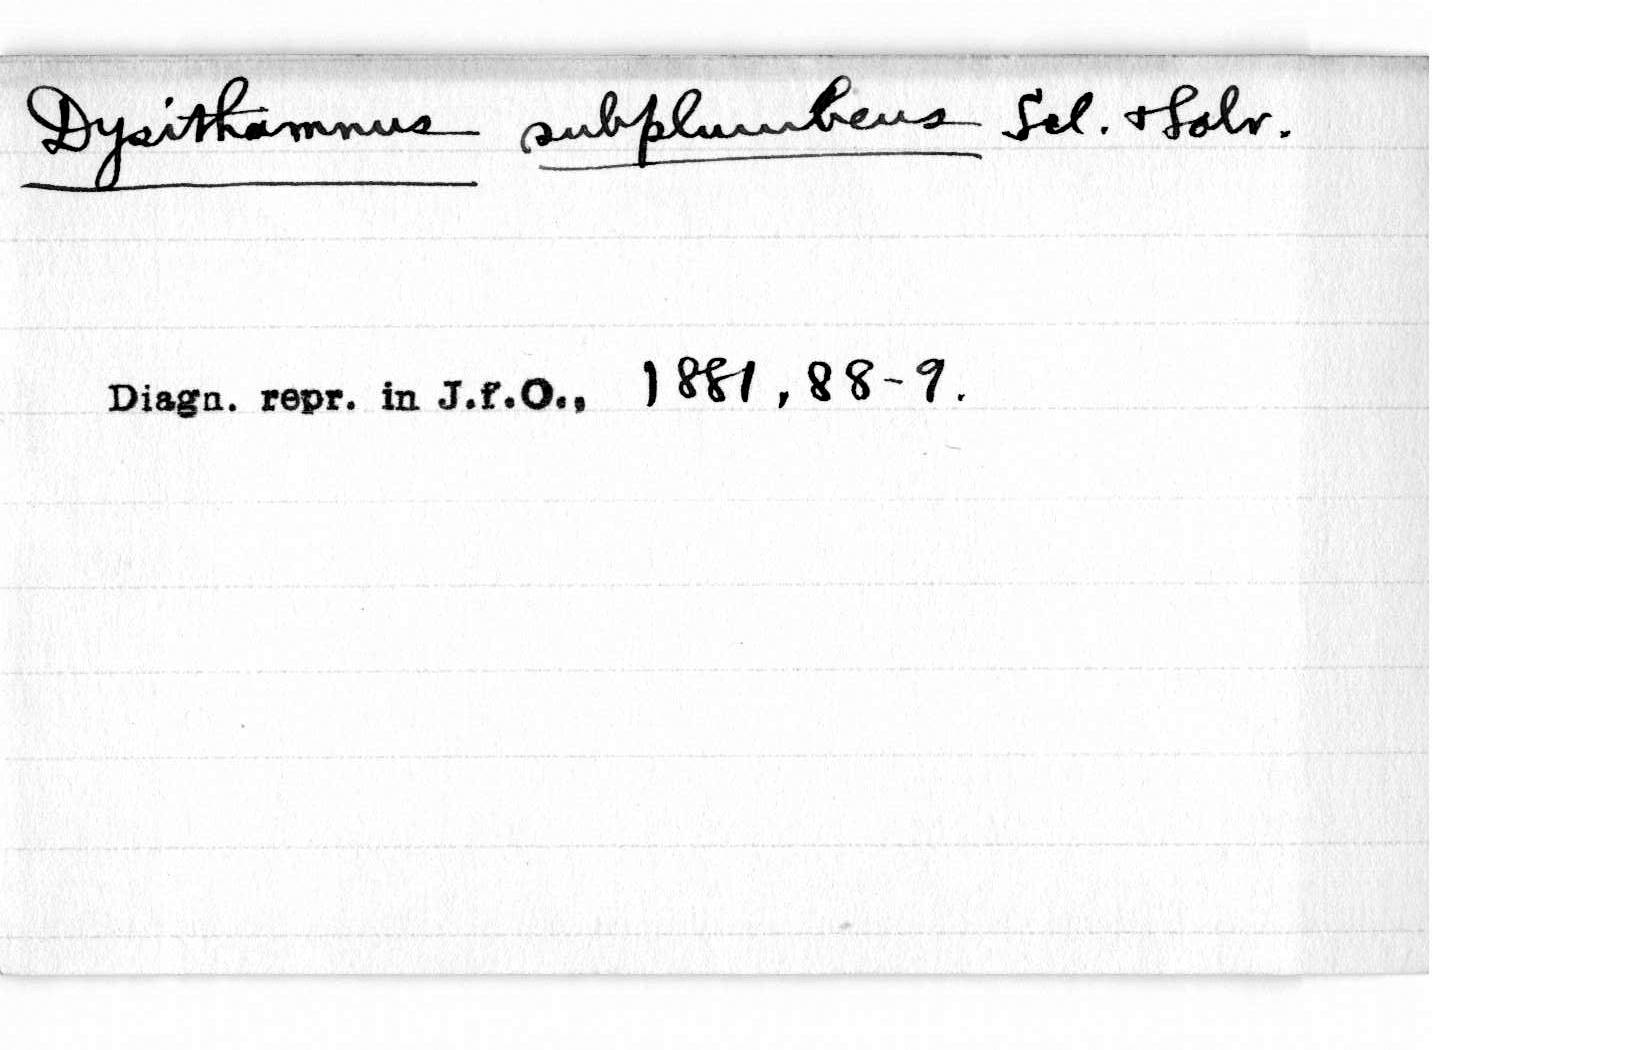 Dysithamnus subplumbeus Scl. & Salv.
Diagn. repr. in J.f.O., 1881, 88-9.